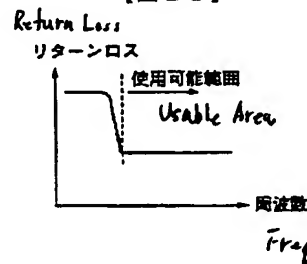 Return Loss
リターンロス
使用可能範囲
Usable Area
周波数
Freq